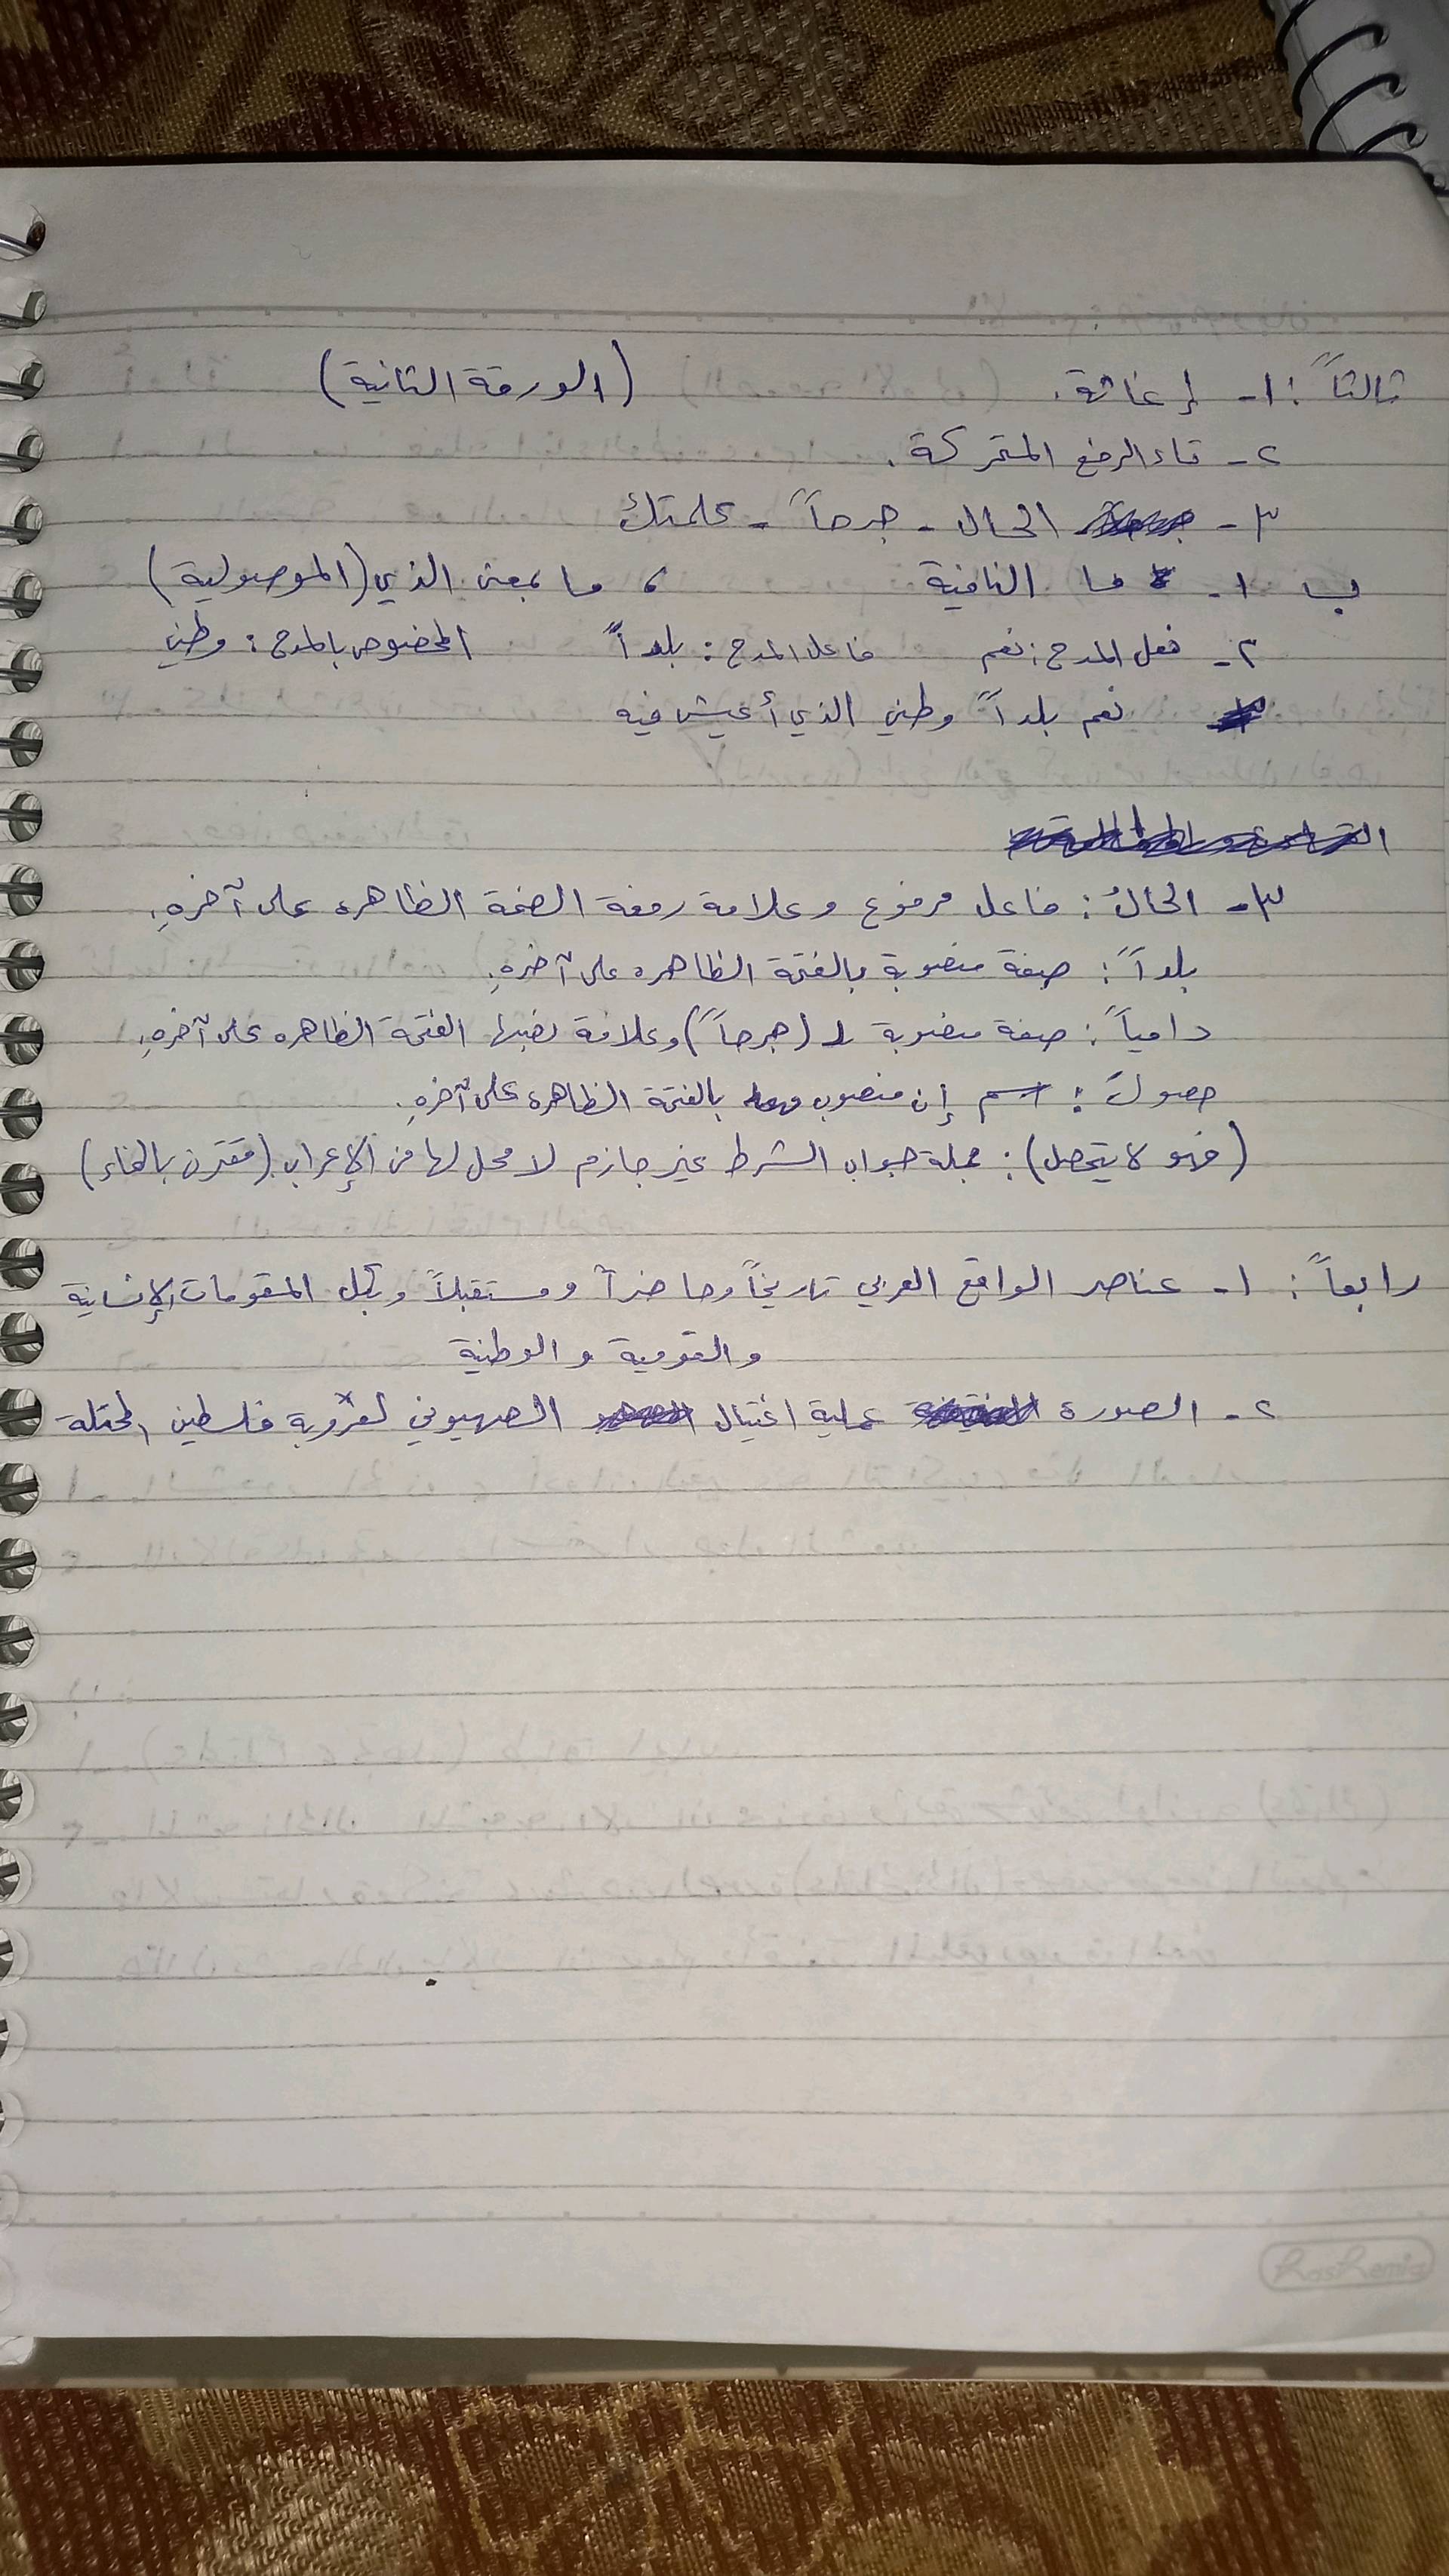 (الورقة الثانية)
ثالثاً: ١- إغاثة.
٢- تاء الرفع المتحركة.
٣- الحال - جرحاً - علمتك
ب ١- ما النافية ، ما بمعنى الذي (الموصولية)
٢- فعل المدح: نعم فاعل المدح: بلداً المخصوص بالمدح: وطني
نعم بلداً وطني الذي أعيش فيه
٣- الحالُ: فاعل مرفوع وعلامة رفعة الضمة الظاهره على آخرهِ.
بلداً: صفة منصوبة بالفتحة الظاهره على آخرهِ.
دامياً: صفة منصوبة لـ (جرحاً) وعلامة نصبها الفتحة الظاهره على آخرهِ.
حصولَ: اسم إن منصوب بالفتحة الظاهرة على آخرهِ.
(فهو لا يتحصل): جملة جواب الشرط غير جازم لا محل لها من الإعراب (مقترن بالفاء)
رابعاً: ١- عناصر الواقع العربي تاريخاً وحاضراً ومستقبلاً وبكل المقومات الإنسانية
والقومية والوطنية
٢- الصورة عملية اغتيال الصهيوني لعروبة فلسطين المحتلة
hashemia